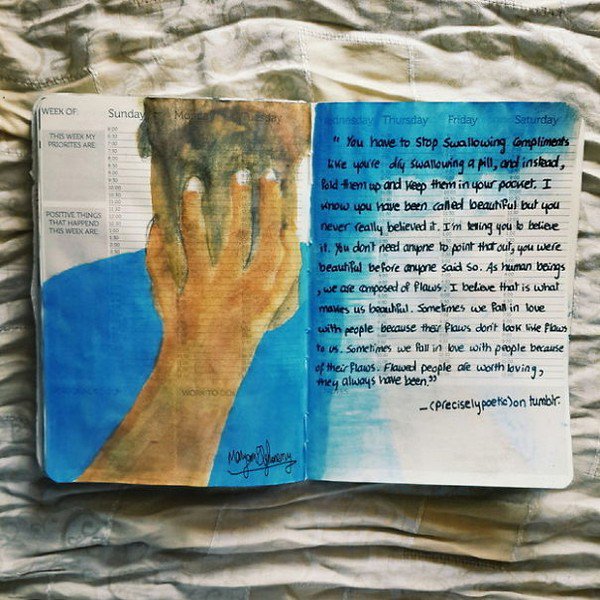 WEEK OF:
Sunday
Tuesday
Thursday
Friday
Saturday
THIS WEEK MY
PRIORITES ARE:
POSITIVE THINGS
THAT HAPPEND
THIS WEEK ARE:
WORK TO DO
"You have to stop swallowing compliments
like you're dry swallowing a pill, and instead,
fold them up and keep them in your pocket. I
know you have been called beautiful but you
never really believed it. I'm telling you to believe
it. You don't need anyone to point that out, you were
beautiful before anyone said so. As human beings
, we are composed of flaws. I believe that is what
makes us beautiful. Sometimes we fall in love
with people because their flaws don't look like flaws
to us. Sometimes we fall in love with people because
of their flaws. Flawed people are worth loving,
they always have been."
_(preciselypoetic) on tumblr.